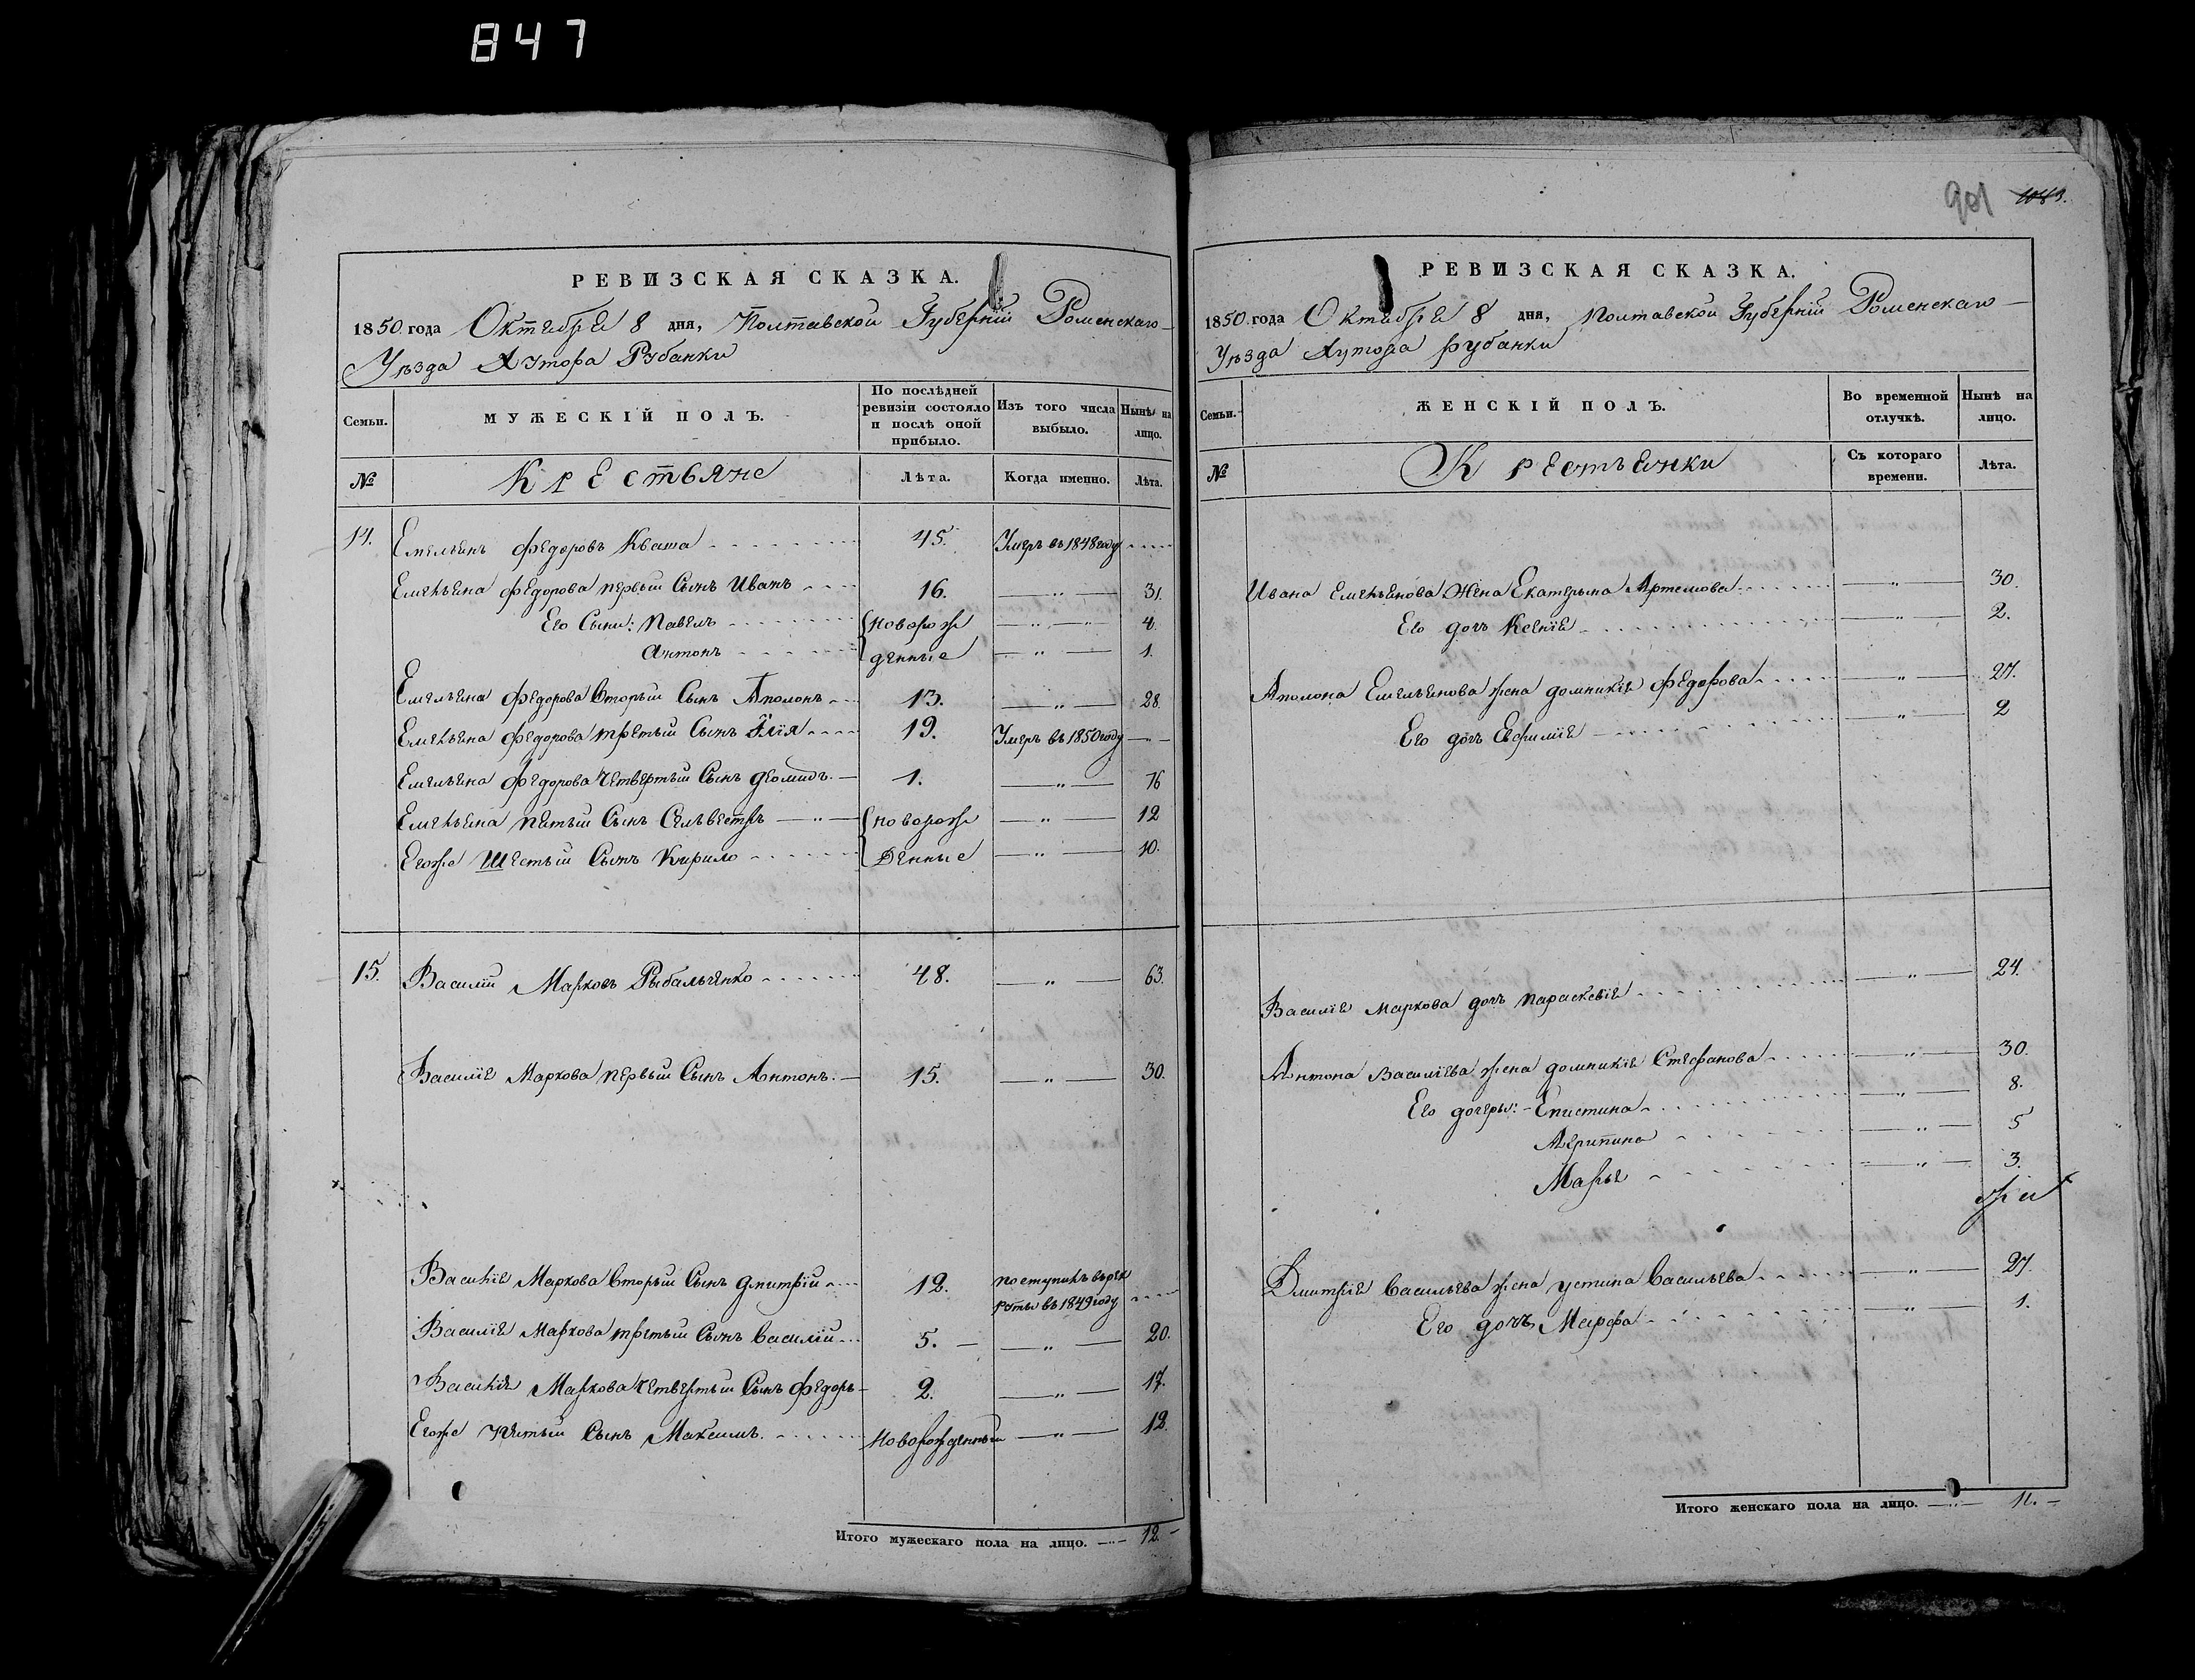 847
901 1083.
РЕВИЗСКАЯ СКАЗКА.
1850. года Октября 8 дня, Полтавской Губерніи Роменскаго
Уѣзда Хутора Рубанки
Семьи.
МУЖЕСКІЙ ПОЛЪ.
По послѣдней ревизіи состояло и послѣ оной прибыло.
Изъ того числа выбыло.
Нынѣ на лицо.
№
Крестьяне
Лѣта.
Когда именно.
Лѣта.
14. Емельянъ Федоровъ Квата 45. Умеръ въ 1848 году
Емельяна Федорова первый Сынъ Иванъ 16. — „ — 31.
Его Сыны: Павелъ { новорож — „ — 4.
Антонъ { денные — „ — 1.
Емельяна Федорова Вторый Сынъ Аполонъ 13. — „ — 28.
Емельяна Федорова третый Сынъ Илія 19. Умеръ въ 1850 году — „ —
Емельяна Федорова Четвертый Сынъ Деомидъ. — 1. — „ — 16
Емельяна пятый Сынъ Селвестръ — „ — { новорож — „ — 12
Егоже Шестый Сынъ Кирило { Денные — „ — 10.
15. Василій Марковъ Рыбальченко 48. — „ — 63.
Василія Маркова первый Сынъ Антонъ. — 15. — „ — 30.
Василія Маркова Вторый Сынъ Дмитрій 12. поступилъ върек
руты въ 1849 году
Василія Маркова третый Сынъ Василій 5. — „ — 20.
Василія Маркова Четвертый Сынъ Федоръ — 2. — „ — 17.
Егоже пятый Сынъ Максимъ. Новорожденный — „ — 12.
Итого мужескаго пола на лицо. — „ — 12. —
РЕВИЗСКАЯ СКАЗКА.
1850. года Октября 8 дня, Полтавской Губерніи Роменскаго —
Уѣзда Хутора Рубанки
Семьи.
ЖЕНСКІЙ ПОЛЪ.
Во временной отлучкѣ.
Нынѣ на лицо.
№
Крестьянки
Съ котораго времени.
Лѣта.
Ивана Емельянова Жена Екатерына Артемова — „ — 30.
Его дочь Ксенія — „ — 2.
Аполона Емельянова жена домникія Федорова — „ — 27.
Его дочь Евфимія — „ — 2
Василія Маркова дочь Параскевія — „ — 24.
Антона Василіева жена домникія Стефанова — „ — 30.
Его дочеры: Епистина — „ — 8.
Агрипина — „ — 5
Марья — „ — 3.
Дмитрія Васильева жена устина Васильева — „ — 27.
Его дочь Марфа — „ — 1.
Итого женскаго пола на лицо. — „ — 11. —